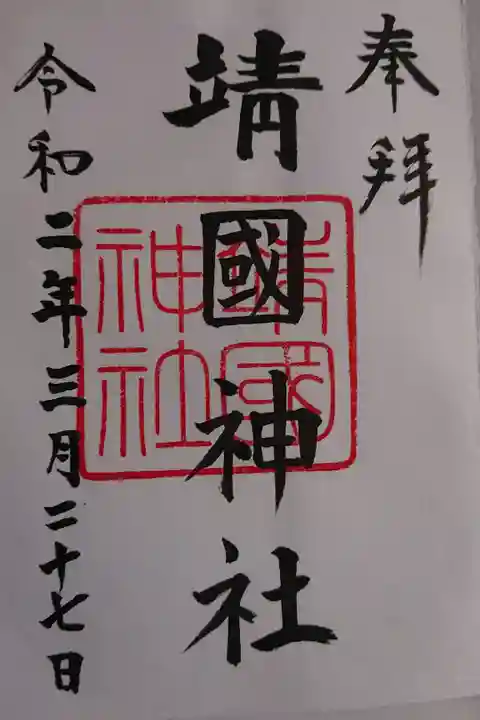 奉拝
靖國神社
靖國
神社
令和二年三月二十七日